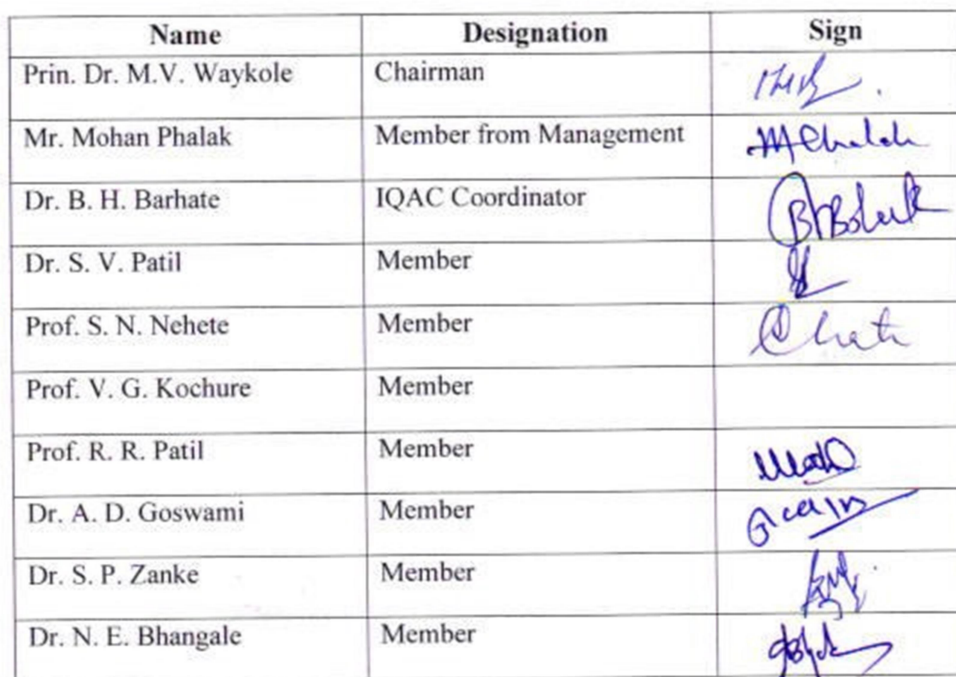 Name Designation Sign
Prin. Dr. M.V. Waykole Chairman
Mr. Mohan Phalak Member from Management
Dr. B. H. Barhate IQAC Coordinator
Dr. S. V. Patil Member
Prof. S. N. Nehete Member
Prof. V. G. Kochure Member
Prof. R. R. Patil Member
Dr. A. D. Goswami Member
Dr. S. P. Zanke Member
Dr. N. E. Bhangale Member